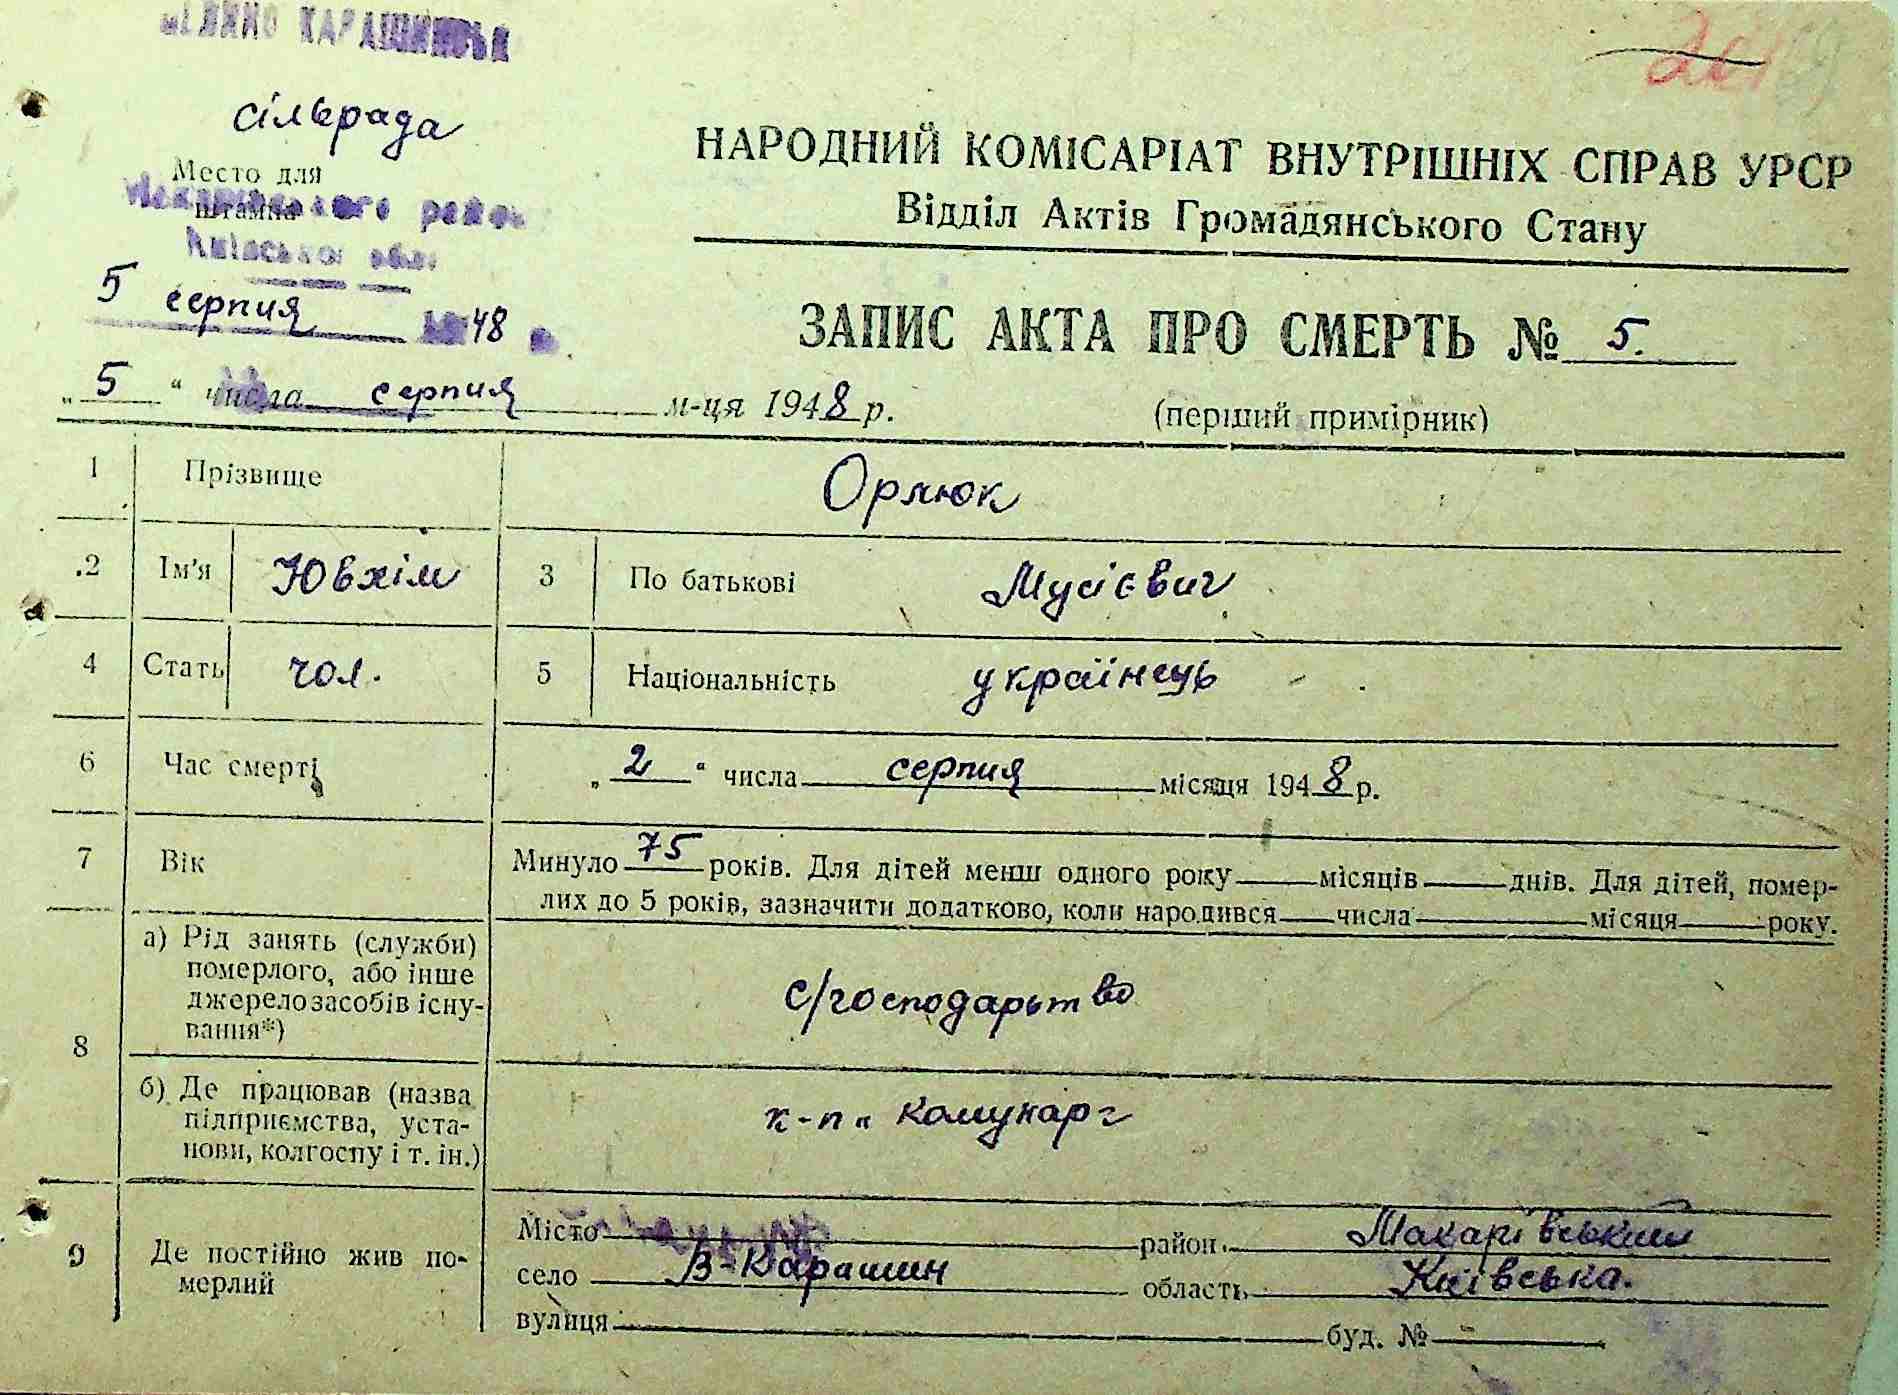 сільрада
Место для
штампа
Макарівського району
Київської обл.
5
серпня 1948
НАРОДНИЙ КОМІСАРІАТ ВНУТРІШНІХ СПРАВ УРСР
Відділ Актів Громадянського Стану
ЗАПИС АКТА ПРО СМЕРТЬ № 5.
„5“ числа серпня м-ця 1948 р.
(перший примірник)
1 Прізвище Орлюк
2 Ім'я Ювхім 3 По батькові Мусієвич
4 Стать чол. 5 Національність українець
6 Час смерті „2“ числа серпня місяця 1948 р.
7 Вік Минуло 75 років. Для дітей менш одного року місяців днів. Для дітей, помер-
лих до 5 років, зазначити додатково, коли народився числа місяця року.
8 а) Рід занять (служби)
померлого, або інше
джерело засобів існу-
вання*)
с/господарьтво
б) Де працював (назва
підприємства, уста-
нови, колгоспу і т. ін.)
к-п „ Комунар
9 Де постійно жив по-
мерлий
Місто район Макарівський
село В-Карашин область Київська.
вулиця буд. № -